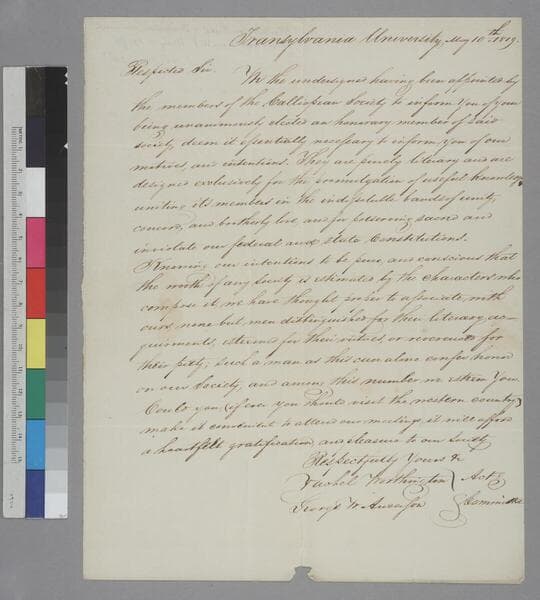 Transylvania University, May 10th 1819.
Respected Sir. We the undersigned having been appointed by
the members of the Calliopean Society to inform you of your
being unanimously elected an honorary member of said
society deem it essentially necessary to inform you of our
motives, and intentions. They are purely literary and are
designed exclusively for the promulgation of useful knowledge
uniting its members in the indissoluble bands of unity,
concord, and brotherly love, and for preserving sacred and
inviolate our federal and state Constitutions.
Knowing our intentions to be pure, and conscious that
the worth of any society is estimated by the characters who
compose it, we have thought proper to associate with
ours none but men distinguished for their literary ac-
quirements, esteemed for their virtues, or reverenced for
their piety; such a man as this can alone confer honor
on our Society, and among this number we esteem you
Could you (if ever you should visit the western country)
make it convenient to attend our meeting it will afford
a heartfelt gratification and pleasure to our Society
Respectfully Yours &c
Worthington } Act.
George W. } Committee